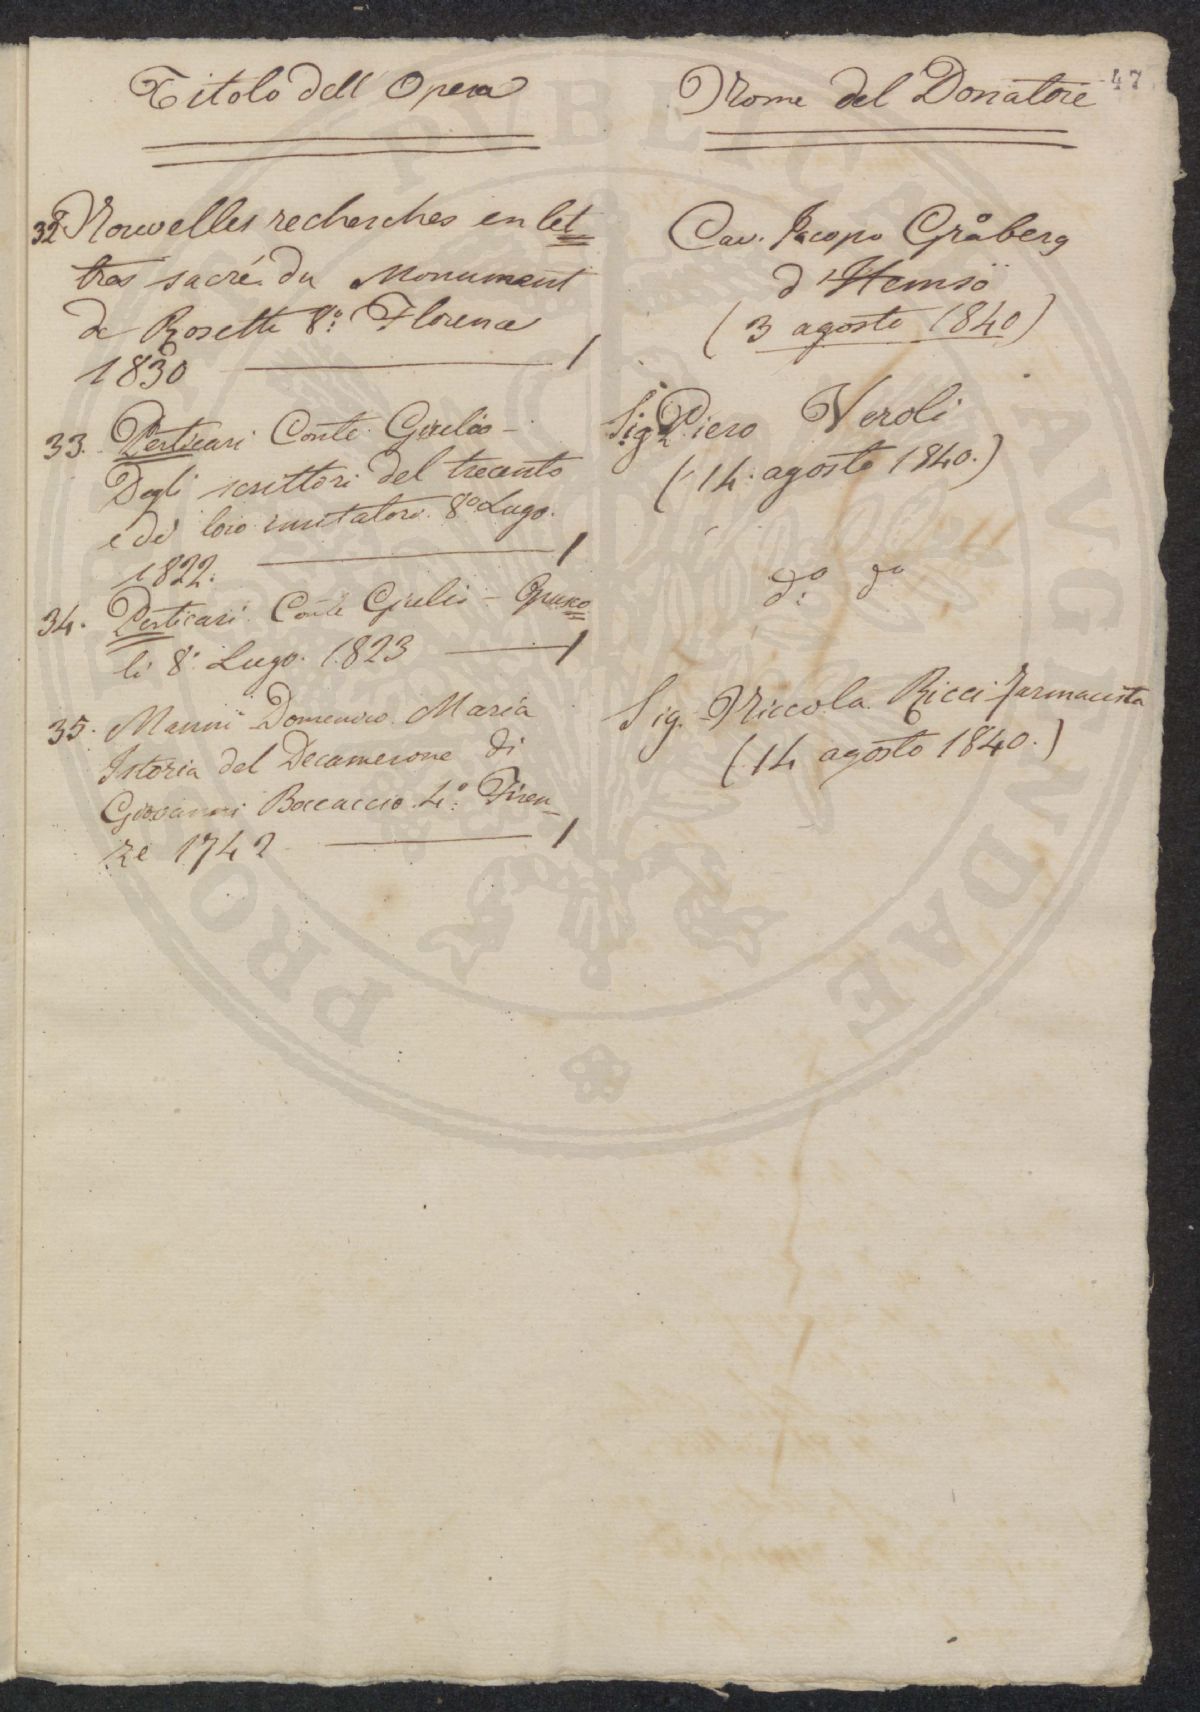 47
Titolo dell' Opera
Nome del Donatore
32. Nouvelles recherches en let=
tres sacré. du Monument
de Rosette 8º: Florence
1830 — 1
Cav. Jacopo Gråberg
d'Hemsö
(3 agosto 1840)
33. Perticari Conte Giulio –
Degli scrittori del trecento
e de' loro imitatori 8º Lugo.
1822. — 1
Sigr. Piero Veroli
(14. agosto 1840.)
34. Perticari Conte Giulio – Opusco=
li 8º. Lugo. 1823 — 1
dº: dº
35. Manni Domenico Maria
Istoria del Decamerone di
Giovanni Boccaccio 4º: Firen=
ze 1742 — 1
Sig. Niccola Ricci farmacista
(14 agosto 1840.)
PUBLICAE
PRO
IUGENDAE